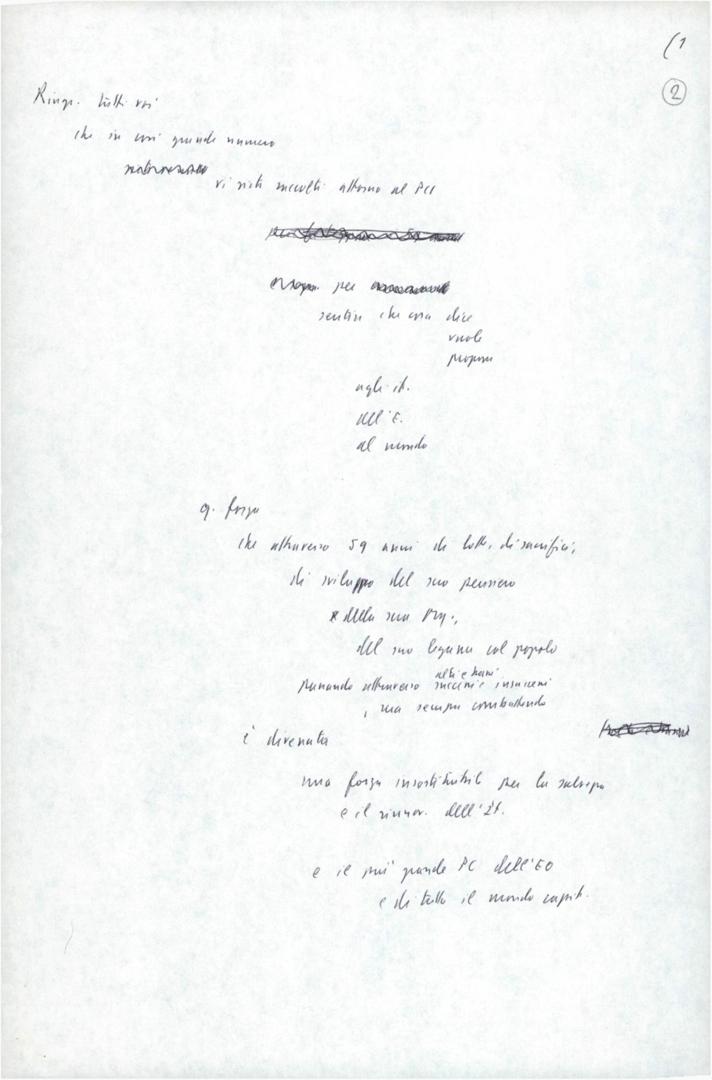 (1
2
Ringr. tutti voi
che in così grande numero
vi siete raccolti attorno al PCI
per
sentire che cosa dice
vuole
propone
agli it.
all'E.
al mondo
q. forza
che attraverso 59 anni di lotte, di sacrifici,
di sviluppo del suo pensiero
della sua
del suo legame col popolo
alti e bassi
passando attraverso successi e insuccessi
, ma sempre combattendo
è divenuta
una forza insostituibil per la salvezza
e il rinnov. dell'It.
e il più grande PC dell'EO
e di tutto il mondo capit.